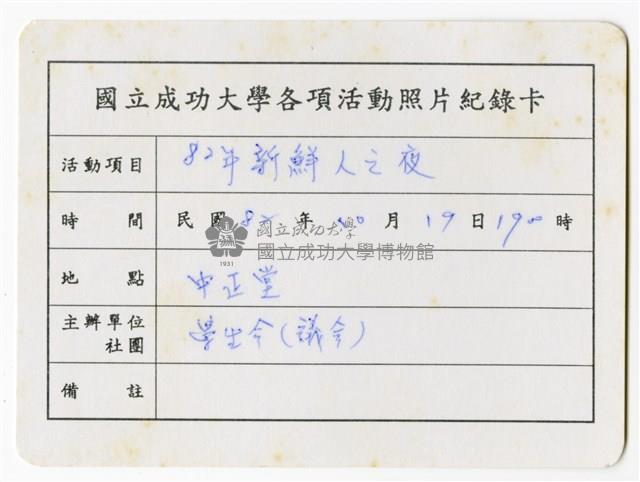 國立成功大學各項活動照片紀錄卡
活動項目 82年新鮮人之夜
時間 民國82年10月19日1900時
國立成功大學
國立成功大學博物館
1931
地點 中正堂
主辦單位社團 學生会(議会)
備註